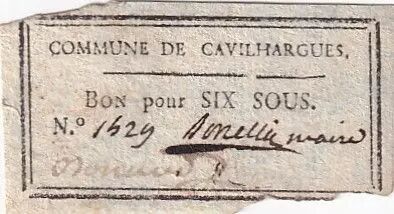 COMMUNE DE CAVILHARGUES,
BON pour SIX SOUS.
N.° 1529 maire